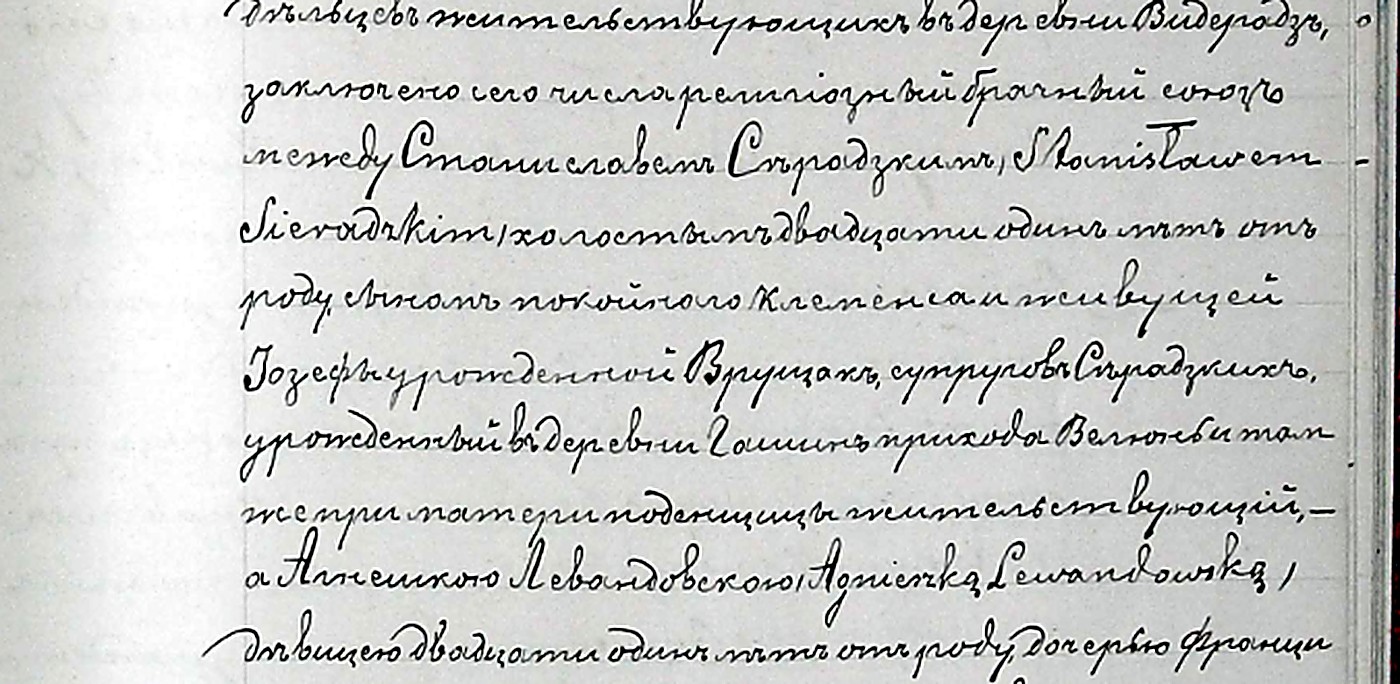 дѣльцевъ жительствующихъ въ деревни Видерадзъ,
заключено сего числа религіозный брачный союзъ
между Станиславемъ Сѣрадзкимъ, /Stanisławem
Sieradzkim/ холостымъ двадцати одинъ лѣтъ отъ
роду, сыномъ покойнаго Клеменса и живущей
Іозефы урожденной Врущакъ, супруговъ Сѣрадзкихъ,
урожденный въ деревни Гашинъ прихода Велюнь и там
же при матери поденщицы жительствующій, —
а Агнешкою Левандовскою, /Agnieszką Lewandowską /
дѣвицею двадцати одинъ лѣтъ отъ роду, дочерью Франци